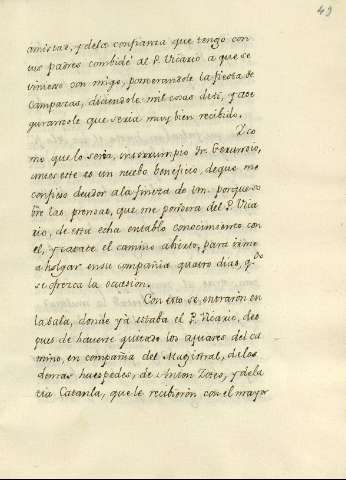 49
amistad, y dela confianza que tengo con
tus padres combidé al P. Vicario a que se
viniese con migo, ponderandole la fiesta de
Campazas, diciendole mil cosas de ti, y ase
gurandole que seria muy bien recibido.
Y co
mo que lo sera, interrumpió Fr. Gerundio,
pues este es un nuebo beneficio, de que me
confieso deudor ala fineza de vm. porque so
bre las prendas, que me pondera del P. Vica
rio, de esta echa entablo conocimiento con
el, y catate el camino abierto, para irme
a holgar en su compañia quatro dias, qdo
se ofrezca la ocasion.
Con esto se entraron en
la sala, donde yá estaba el P. Vicario, des
pues de haverse quitado los ajuares del ca
mino, en compañia del Magistral, de los
demas huespedes, de Anton Zotes, y dela
tia Catanla, que le recibieron con el mayor